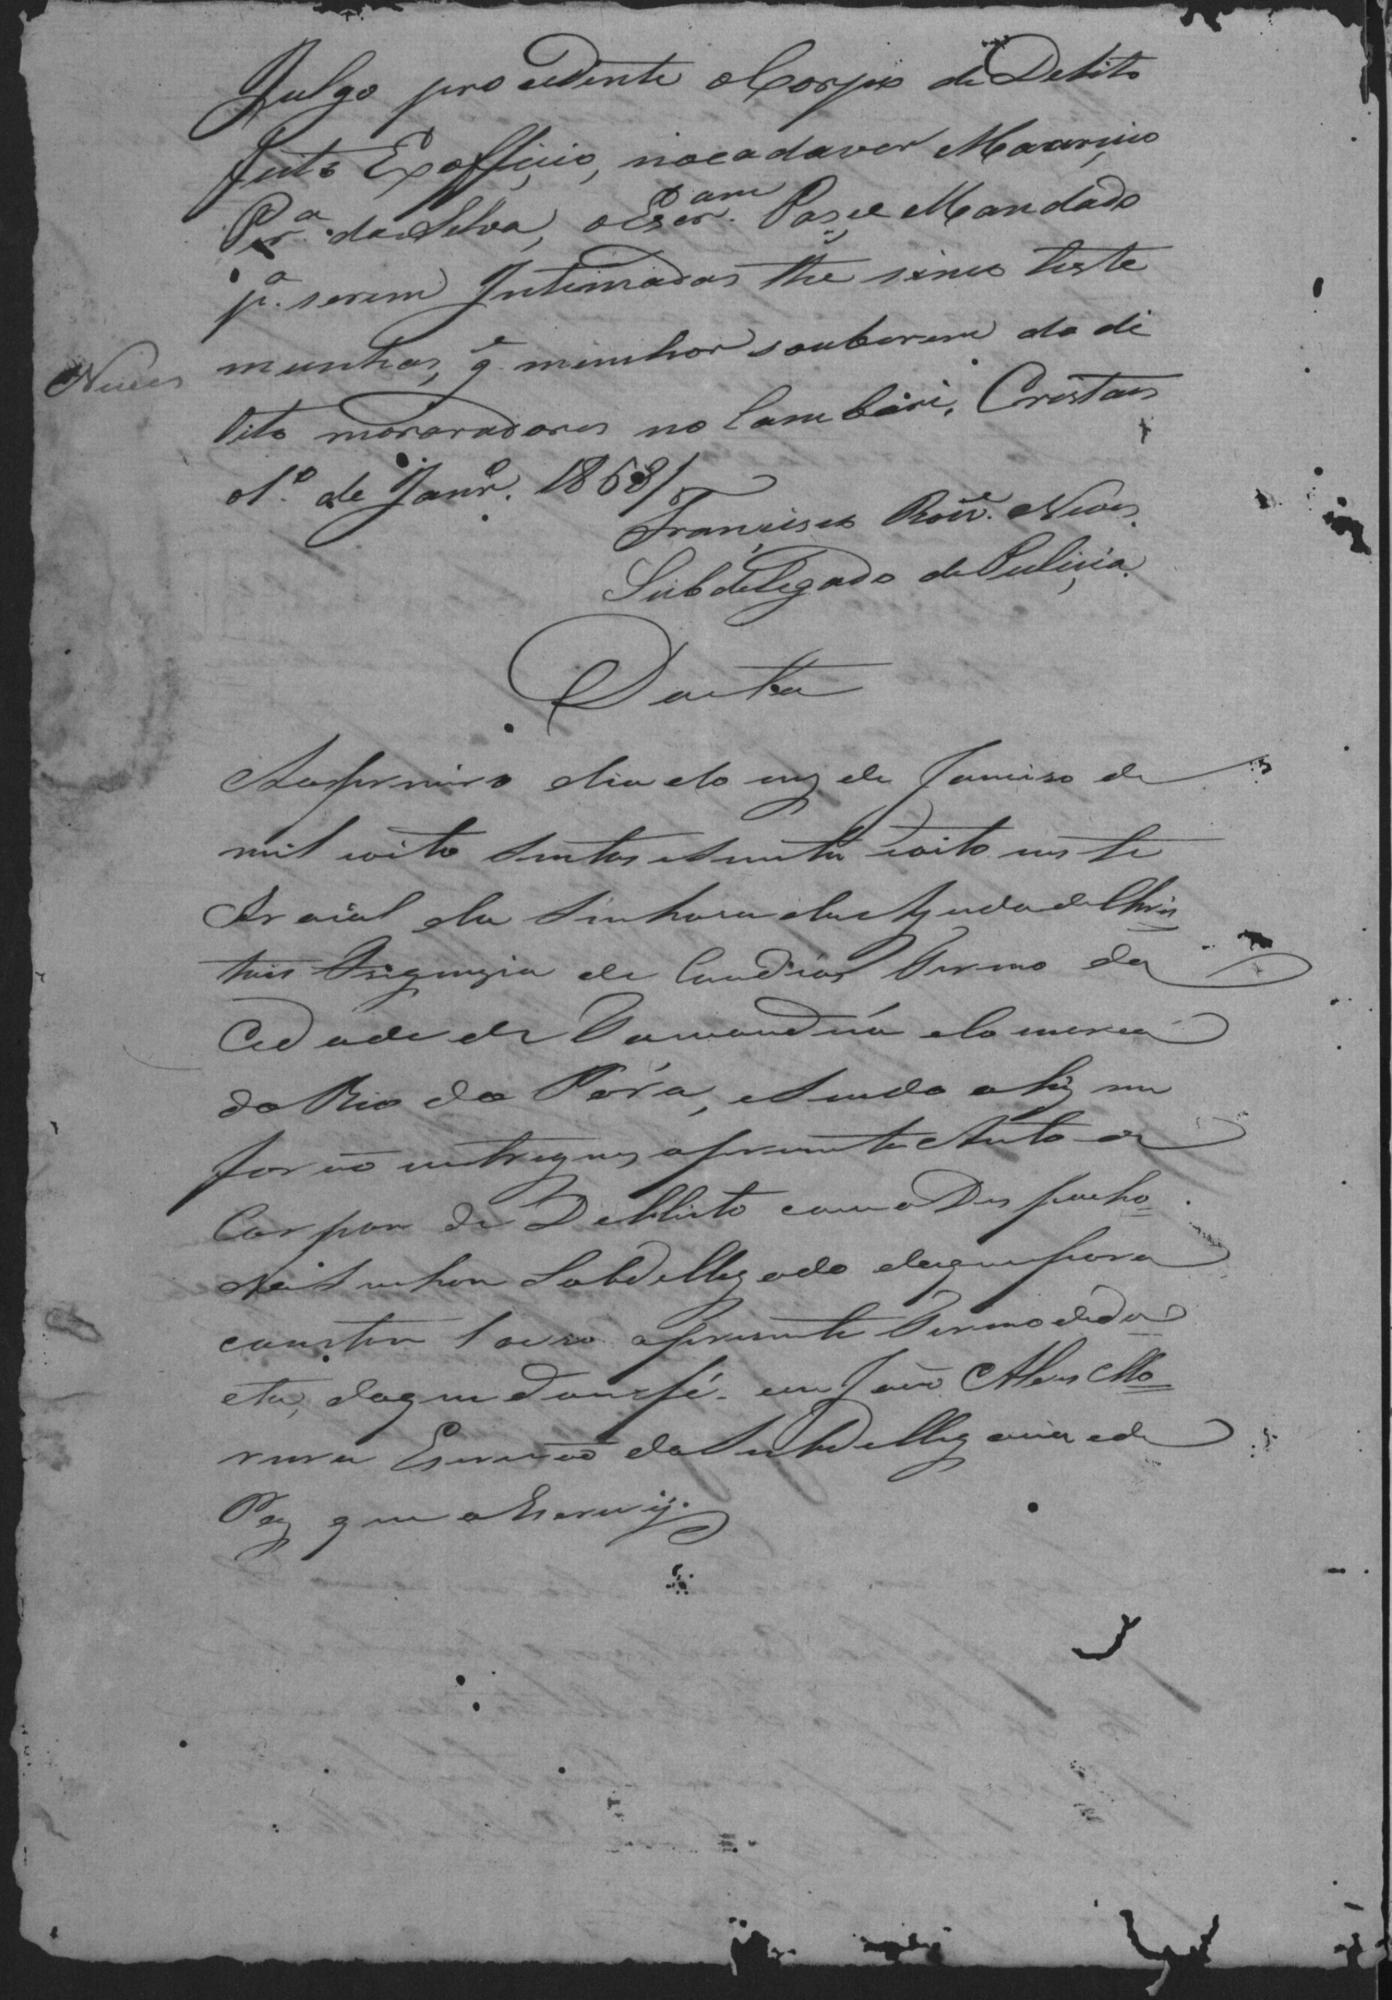 Julgo procedente o Corpo de Delito
feito Exofficio, nocadaver Mauricio
Per.ª da Silva, o Escr.am Passe Mandado
p.ª serem Intimadas the sinco teste
munhas, q.e mincthor souberem do di
Neves
lito moraradores no Lambari. Cristais
o 1.º de Janr.º 1868/
Francisco Roiz. Neves
Subdelegado de Pulicia.
Dacta
Aosprimeiro dia do mez de Janeiro de
mil oito sentos esecenta eoito neste
Araial da Sinhora da Ajuda de Chris
tais Freguezia de Candeias Termo da
Cidade de Tamanduá Comarca
do Rio do Pará, esendo ahi me
forão entregues apresente Auto de
Corpom de Dellicto com o Despacho
do Senhor Subdellegado deque para
constar Lavro apresente Termo de da
cta, doque doufé. eu João Alves Mo
reira Escrivão da Subdellegacia ede
Paz que o Escrevy.